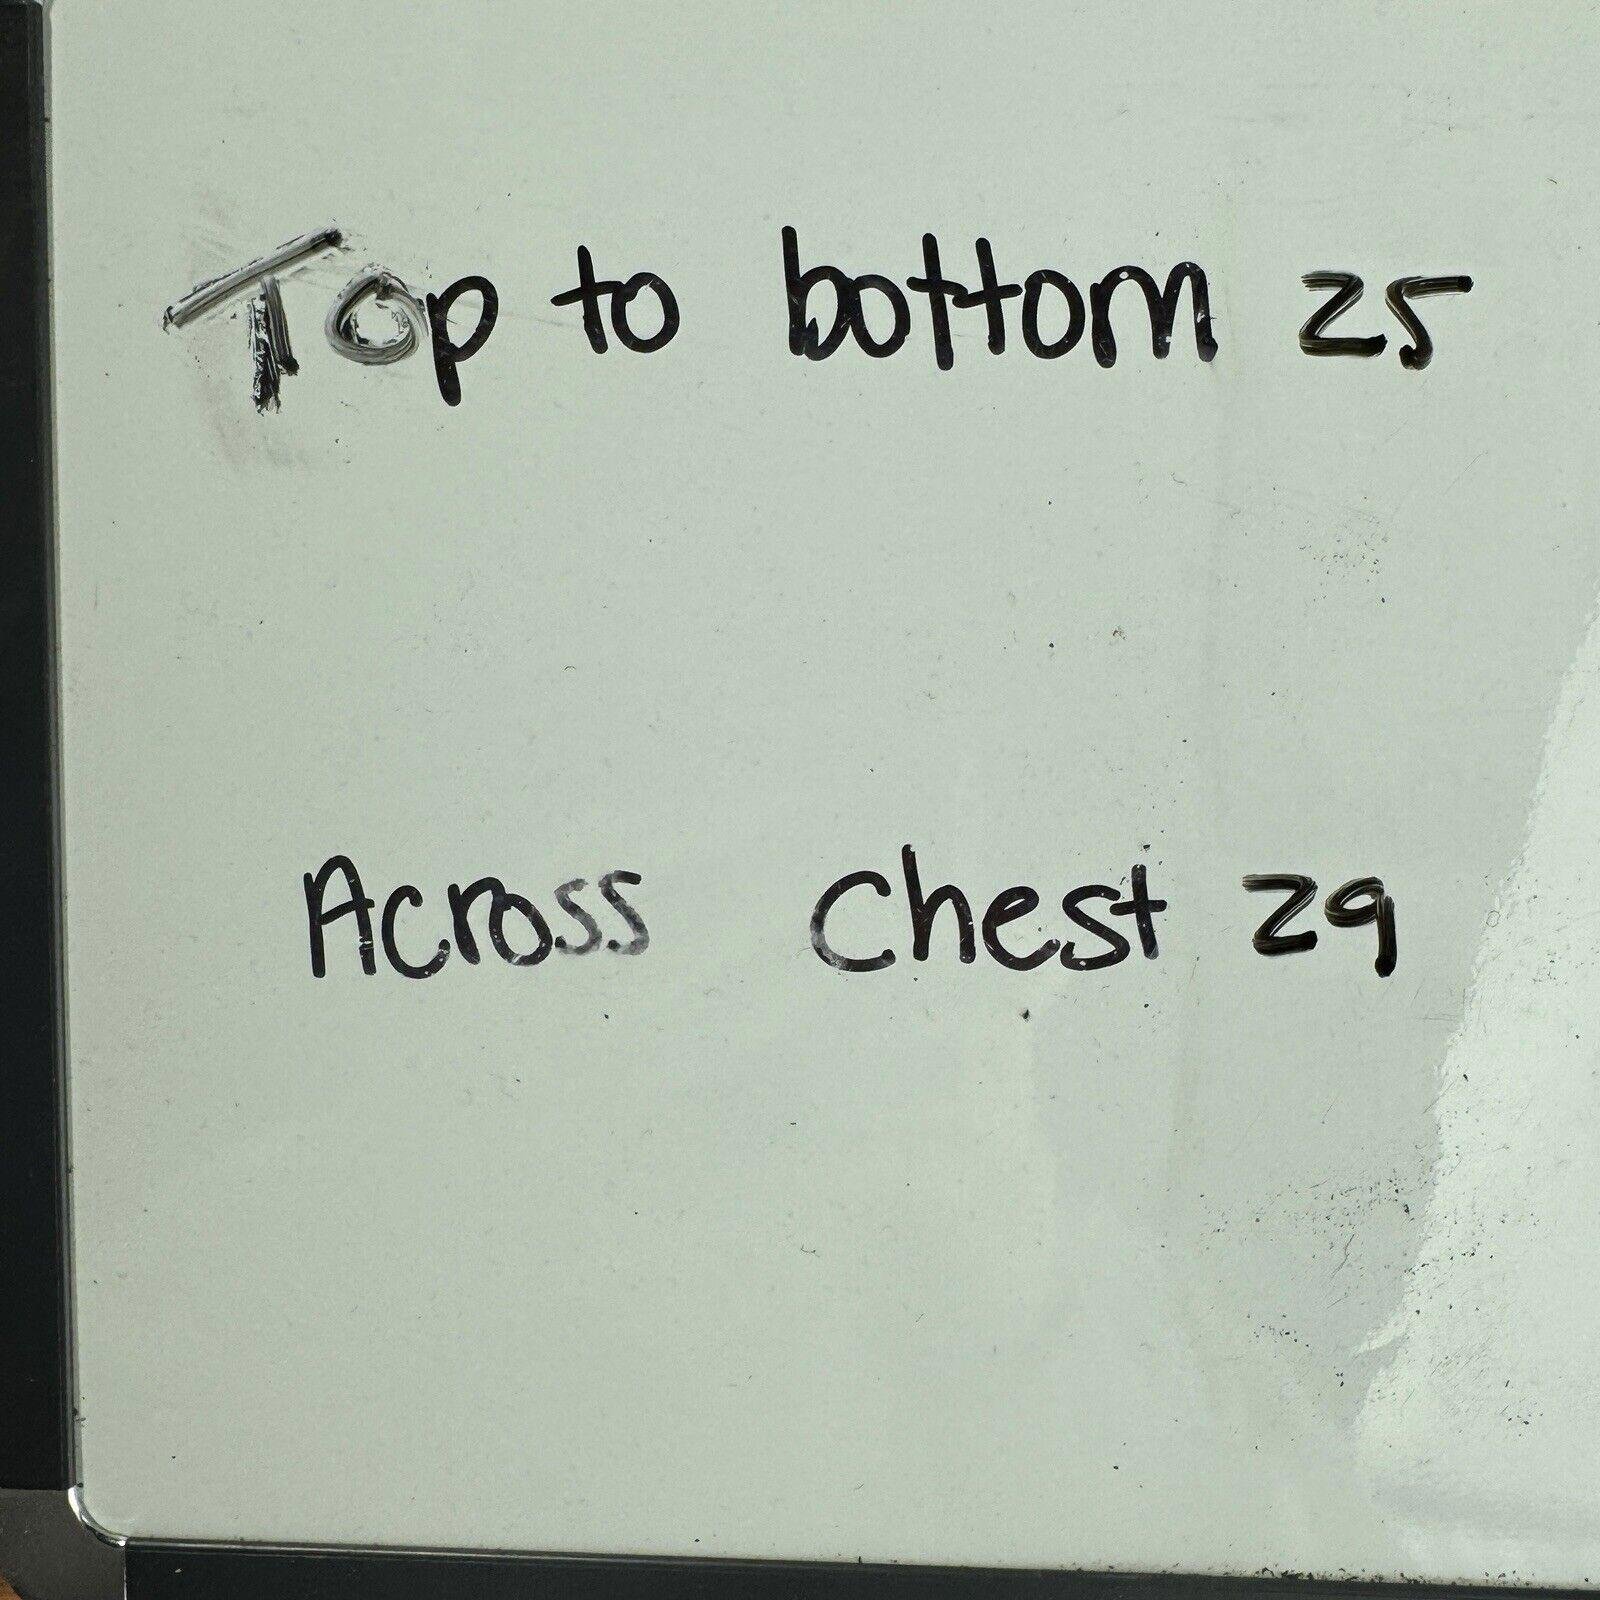 Top to bottom 25
Across chest 29